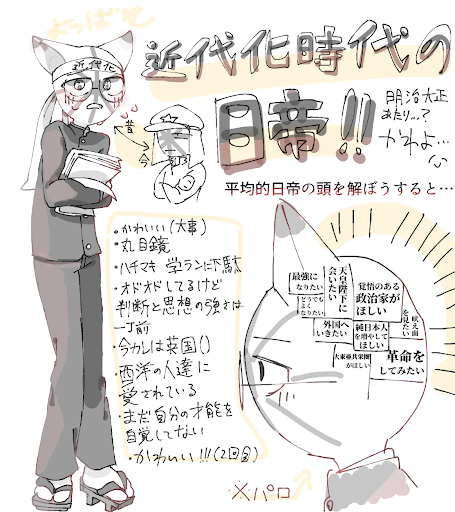 よっぱらて
近代化時代の
日帝!!
明治大正
あたり…?
かわよ…
近代化
昔
今
平均的日帝の頭を解ぼうすると…
・かわいい(大事)
・丸目鏡
・ハチマキ 学ランに下駄
・オドオドしてるけど
判断と思想の強さは
一丁前
・今カレは英国()
・西洋の人達に
愛されている
・まだ自分の才能を
自覚してない
・かわいい!!!(2回目)
最強に
なりたい
天皇陛下に
会いたい
覚悟のある
政治家が
ほしい
吠え面
を見たい
どうでも
よく
なりたい
外国へ
いきたい
純日本人
を増やして
ほしい
大東亜共栄圏
がほしい
革命を
してみたい
※パロ